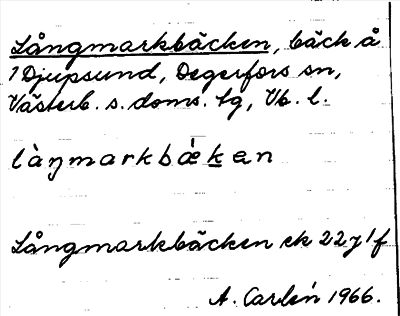 Långmarkbäcken, bäck å
1 Djupsund, Degerfors sn,
Västerb. s. doms. tg, Vb. l.
làŋmarkbǽkən
Långmarkbäcken ek 22 J 1 f
A. Carlén 1966.